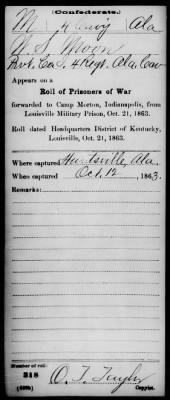 (Confederate.)
M 4 Cav'y Ala
W. S. Moon
Pvt. Co. I. 4 Regt. Ala. Cav
Appears on a
Roll of Prisoners of War
forwarded to Camp Morton, Indianapolis, from
Louisville Military Prison, Oct. 21, 1863.
Roll dated Headquarters District of Kentucky,
Louisville, Oct. 21, 1863.
Where captured Huntsville, Ala.
When captured Oct. 12, 1863.
Remarks:
Number of roll:
318
O. T. Taylor
Copyist.